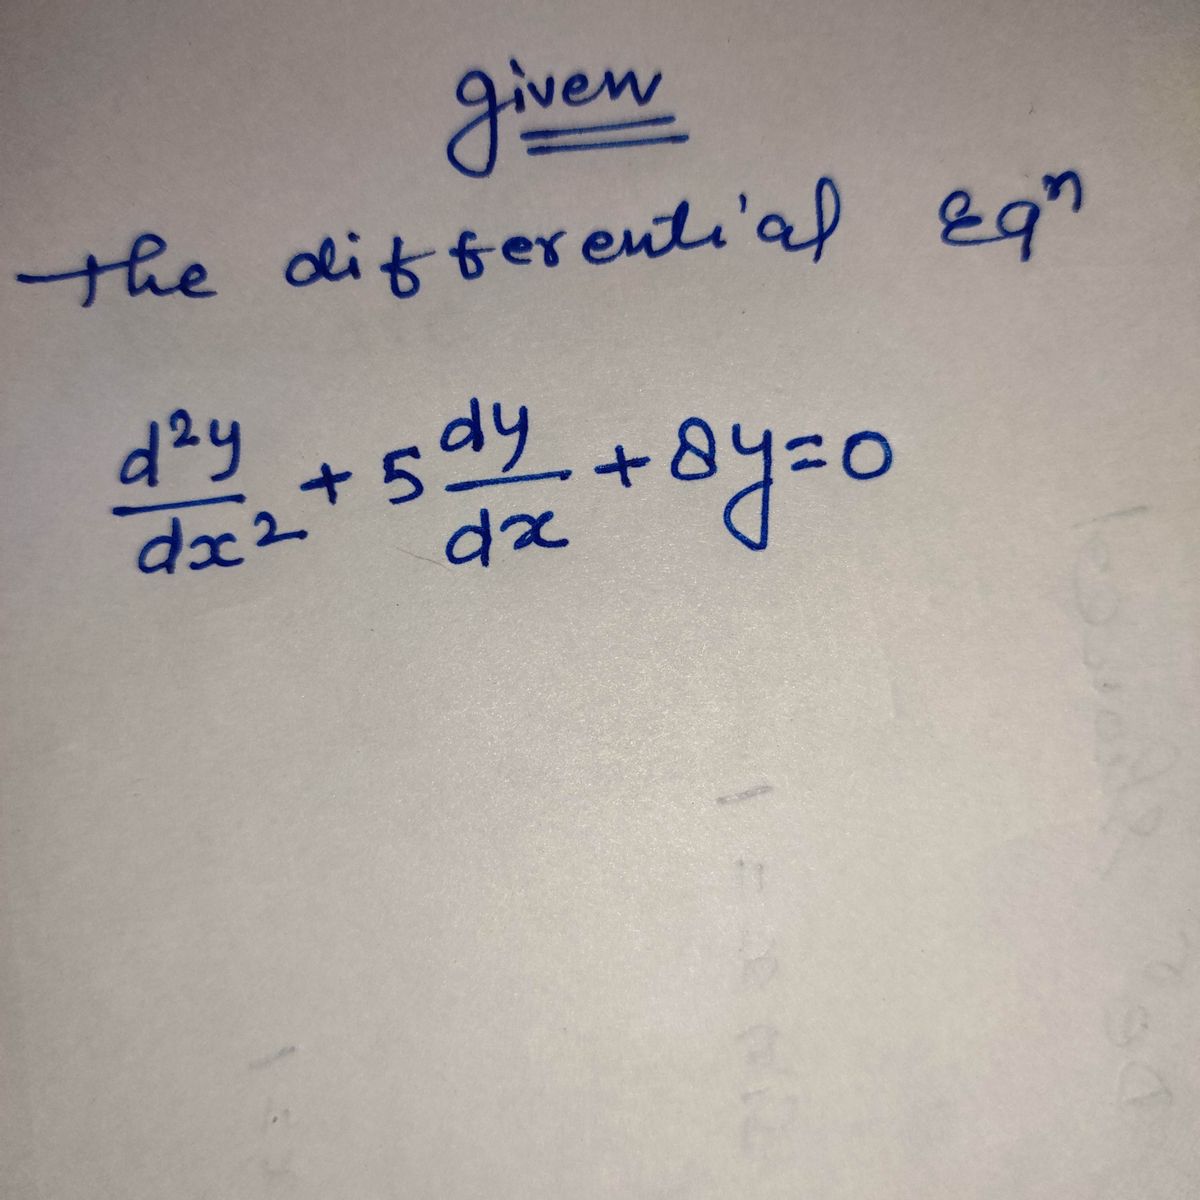 given
the differential Eqⁿ
d²y/dx² + 5 dy/dx + 8y=0